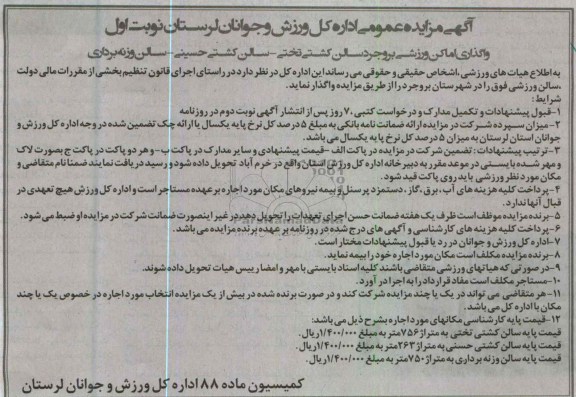 آگهی مزایده عمومی اداره کل ورزش و جوانان لرستان نوبت اول
واگذاری اماکن ورزشی بروجرد سالن کشتی تختی - سالن کشتی حسینی - سالن وزنه برداری
به اطلاع هیات های ورزشی، اشخاص حقیقی و حقوقی می رساند این اداره کل در نظر دارد در راستای اجرای قانون تنظیم بخشی از مقررات مالی دولت
،سالن ورزشی فوق را در شهرستان بروجرد را از طریق مزایده واگذار نماید.
شرایط:
۱-قبول پیشنهادات و تکمیل مدارک و درخواست کتبی ۷۰ روز پس از انتشار آگهی نوبت دوم در روزنامه
۲-میزان سپرده شرکت در مزایده ارائه ضمانت نامه بانکی به مبلغ ۵ درصد کل نرخ پایه یکسال یا ارائه چک تضمین شده در وجه اداره کل ورزش و
جوانان استان لرستان به میزان ۵ درصد کل نرخ پایه یکسال می باشد.
۳-ترتیب پیشنهادات: تضمین شرکت در مزایده در پاکت الف - قیمت پیشنهادی و سایر مدارک در پاکت ب - و هر دو پاکت در پاکت ج بصورت لاک
و مهر شده بایستی در موعد مقرر به دبیرخانه اداره کل ورزش استان واقع در خرم آباد تحویل داده شود و رسید دریافت نمایند ضمنا نام متقاضی و
مکان مورد نظر ورزشی باید روی پاکت قید شود.
۴-پرداخت کلیه هزینه های آب، برق، گاز، دستمزد پرسنل و بیمه نیروهای مکان مورد اجاره بر عهده مستاجر است و اداره کل ورزش هیچ تعهدی در
قبال آنها ندارد.
۵-برنده مزایده موظف است ظرف یک هفته ضمانت حسن اجرای تعهدات را تحویل دهد در غیر اینصورت ضمانت شرکت در مزایده او ضبط می شود.
۶-پرداخت کلیه هزینه های کارشناسی و آگهی های درج شده در روزنامه بر عهده برنده مزایده می باشد.
۷-اداره کل ورزش و جوانان در رد یا قبول پیشنهادات مختار است.
۸-برنده مزایده مکلف است مکان مورد اجاره خود را بیمه نماید.
۹-در صورتی که هیاتهای ورزشی متقاضی باشند کلیه اسناد بایستی با مهر و امضا رییس هیات تحویل داده شوند.
۱۰-مستاجر مکلف است مفاد قرارداد را به اجرا در آورد.
۱۱-هر متقاضی می تواند در یک یا چند مزایده شرکت کند و در صورت برنده شده در بیش از یک مزایده انتخاب مورد اجاره در خصوص یک یا چند
مکان با اداره کل می باشد.
۱۲-قیمت پایه کارشناسی مکانهای مورد اجاره بشرح ذیل می باشد:
قیمت پایه سالن کشتی تختی به متراژ ۷۵۶ متر به مبلغ ۱/۴۰۰/۰۰۰ ریال.
قیمت پایه سالن کشتی حسنی به متراژ ۲۶۳ متر به مبلغ ۱/۴۰۰/۰۰۰ ریال.
قیمت پایه سالن وزنه برداری به متراژ ۷۵۰ متر به مبلغ ۱/۴۰۰/۰۰۰ ریال.
کمیسیون ماده ۸۸ اداره کل ورزش و جوانان لرستان